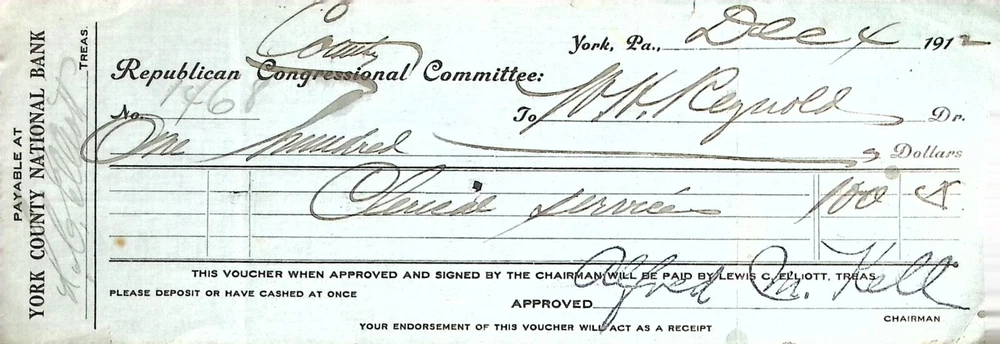 PAYABLE AT
YORK COUNTY NATIONAL BANK
TREAS.
York, Pa., Dec 4 1912
County
Republican Congressional Committee:
No. 1468 To W. H. Reynold Dr.
One hundred Dollars
Clerical services 100
THIS VOUCHER WHEN APPROVED AND SIGNED BY THE CHAIRMAN WILL BE PAID BY LEWIS C. ELLIOTT, TREAS.
PLEASE DEPOSIT OR HAVE CASHED AT ONCE
APPROVED Alfred M. Kell
CHAIRMAN
YOUR ENDORSEMENT OF THIS VOUCHER WILL ACT AS A RECEIPT